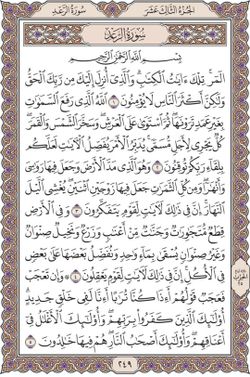 سُورَةُ الرَّعۡدِ الجُزۡءُ الثَّالِثَ عَشَرَ
سُورَةُ الرَّعۡدِ
بِسۡمِ ٱللَّهِ ٱلرَّحۡمَٰنِ ٱلرَّحِيمِ
الٓمٓرۚ تِلۡكَ ءَايَٰتُ ٱلۡكِتَٰبِۗ وَٱلَّذِيٓ أُنزِلَ إِلَيۡكَ مِن رَّبِّكَ ٱلۡحَقُّ
وَلَٰكِنَّ أَكۡثَرَ ٱلنَّاسِ لَا يُؤۡمِنُونَ ١ ٱللَّهُ ٱلَّذِي رَفَعَ ٱلسَّمَٰوَٰتِ
بِغَيۡرِ عَمَدٖ تَرَوۡنَهَاۖ ثُمَّ ٱسۡتَوَىٰ عَلَى ٱلۡعَرۡشِۖ وَسَخَّرَ ٱلشَّمۡسَ وَٱلۡقَمَرَۖ
كُلّٞ يَجۡرِي لِأَجَلٖ مُّسَمّٗىۚ يُدَبِّرُ ٱلۡأَمۡرَ يُفَصِّلُ ٱلۡأٓيَٰتِ لَعَلَّكُم
بِلِقَآءِ رَبِّكُمۡ تُوقِنُونَ ٢ وَهُوَ ٱلَّذِي مَدَّ ٱلۡأَرۡضَ وَجَعَلَ فِيهَا رَوَٰسِيَ
وَأَنۡهَٰرٗاۖ وَمِن كُلِّ ٱلثَّمَرَٰتِ جَعَلَ فِيهَا زَوۡجَيۡنِ ٱثۡنَيۡنِۖ يُغۡشِي ٱلَّيۡلَ
ٱلنَّهَارَۚ إِنَّ فِي ذَٰلِكَ لَأٓيَٰتٖ لِّقَوۡمٖ يَتَفَكَّرُونَ ٣ وَفِي ٱلۡأَرۡضِ
قِطَعٞ مُّتَجَٰوِرَٰتٞ وَجَنَّٰتٞ مِّنۡ أَعۡنَٰبٖ وَزَرۡعٞ وَنَخِيلٞ صِنۡوَانٞ
وَغَيۡرُ صِنۡوَانٖ يُسۡقَىٰ بِمَآءٖ وَٰحِدٖ وَنُفَضِّلُ بَعۡضَهَا عَلَىٰ بَعۡضٖ
فِي ٱلۡأُكُلِۚ إِنَّ فِي ذَٰلِكَ لَأٓيَٰتٖ لِّقَوۡمٖ يَعۡقِلُونَ ٤ ۞ وَإِن تَعۡجَبۡ
فَعَجَبٞ قَوۡلُهُمۡ أَءِذَا كُنَّا تُرَٰبًا أَءِنَّا لَفِي خَلۡقٖ جَدِيدٍۗ
أُوْلَٰٓئِكَ ٱلَّذِينَ كَفَرُواْ بِرَبِّهِمۡۖ وَأُوْلَٰٓئِكَ ٱلۡأَغۡلَٰلُ فِيٓ
أَعۡنَاقِهِمۡۖ وَأُوْلَٰٓئِكَ أَصۡحَٰبُ ٱلنَّارِۖ هُمۡ فِيهَا خَٰلِدُونَ ٥
٢٤٩